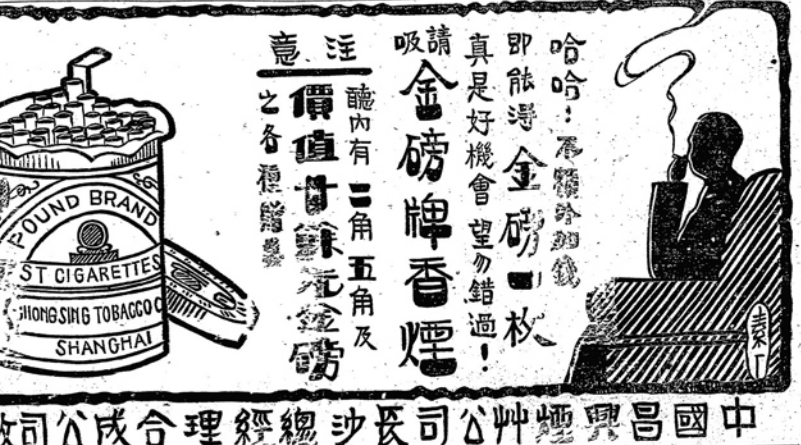 哈哈！不須外加錢
即能得金磅一枚
真是好機會望勿錯過！
請吸
金磅牌香煙
注意
聽內有二角五角及
價值廿餘元金磅
之各種
POUND BRAND
ST CIGARETTES
HONGSING TOBACCO C
SHANGHAI
素厂
中國昌興煙艸公司長沙總經理合成公司